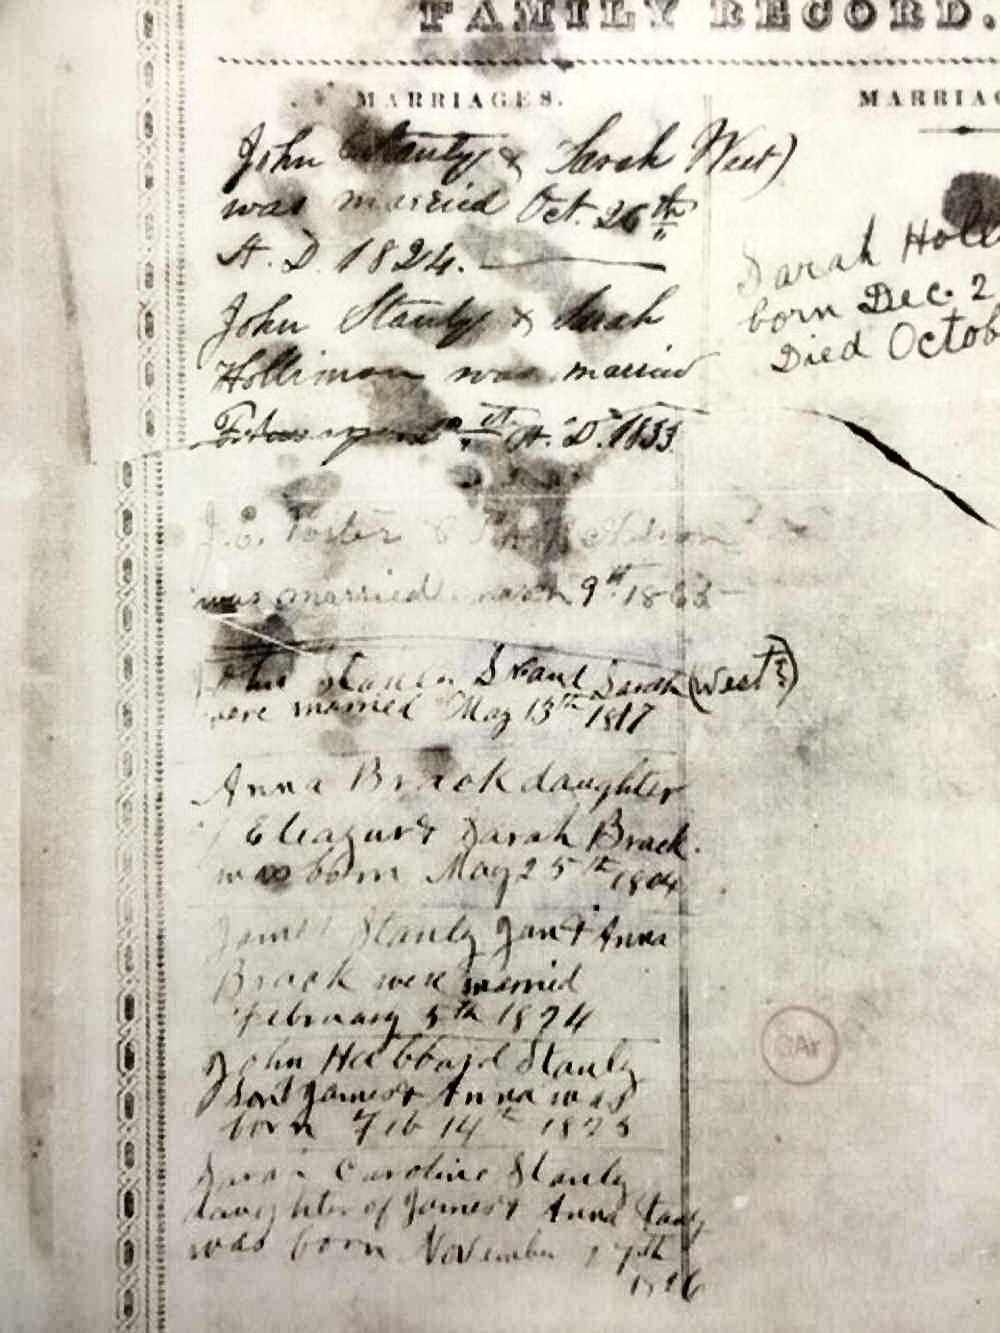 FAMILY RECORD.
MARRIAGES.
John Stanly & Sarah West)
was married Oct. 26th
A. D. 1824.
John Stanly & Sarah
Holliman was married
A. D. 1833
J. E. Foster &
was married march 9th 18
Stanly and Sarah (West)
were married May 13th 1817
Anna Brack daughter
Eleazur & Sarah Brack.
was born May 25th 1804
James Stanly & Anna
Brack were married
February 5th 1824
John Hubbard Stanly
James & Anna was
born Feb 14th
Caroline Stanly
daughter of James & Anna Stanly
was born November 17th
MARRIAG
Sarah Holl
born Dec. 2
Died Octob